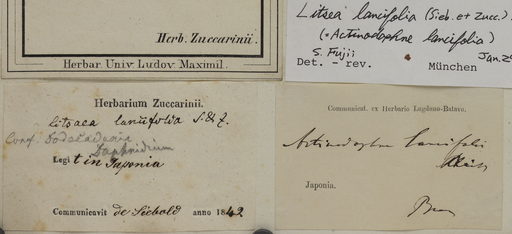 Herb. Zuccarinii.
Herbar. Univ. Ludov. Maximil.
Litsea lancifolia (Sieb. et Zucc.)
(=Actinodaphne lancifolia)
S. Fujii
Jan. 2
Det. - rev. München
Herbarium Zuccarinii.
Litsaea lancifolia S. & Z.
Conf. Dodecadenia
Daphnidium
Legit in Japonia
Communicavit de Siebold anno 1842
Communicat. ex Herbario Lugduno-Batavo.
Actinodaphne lancifolia
Japonia.